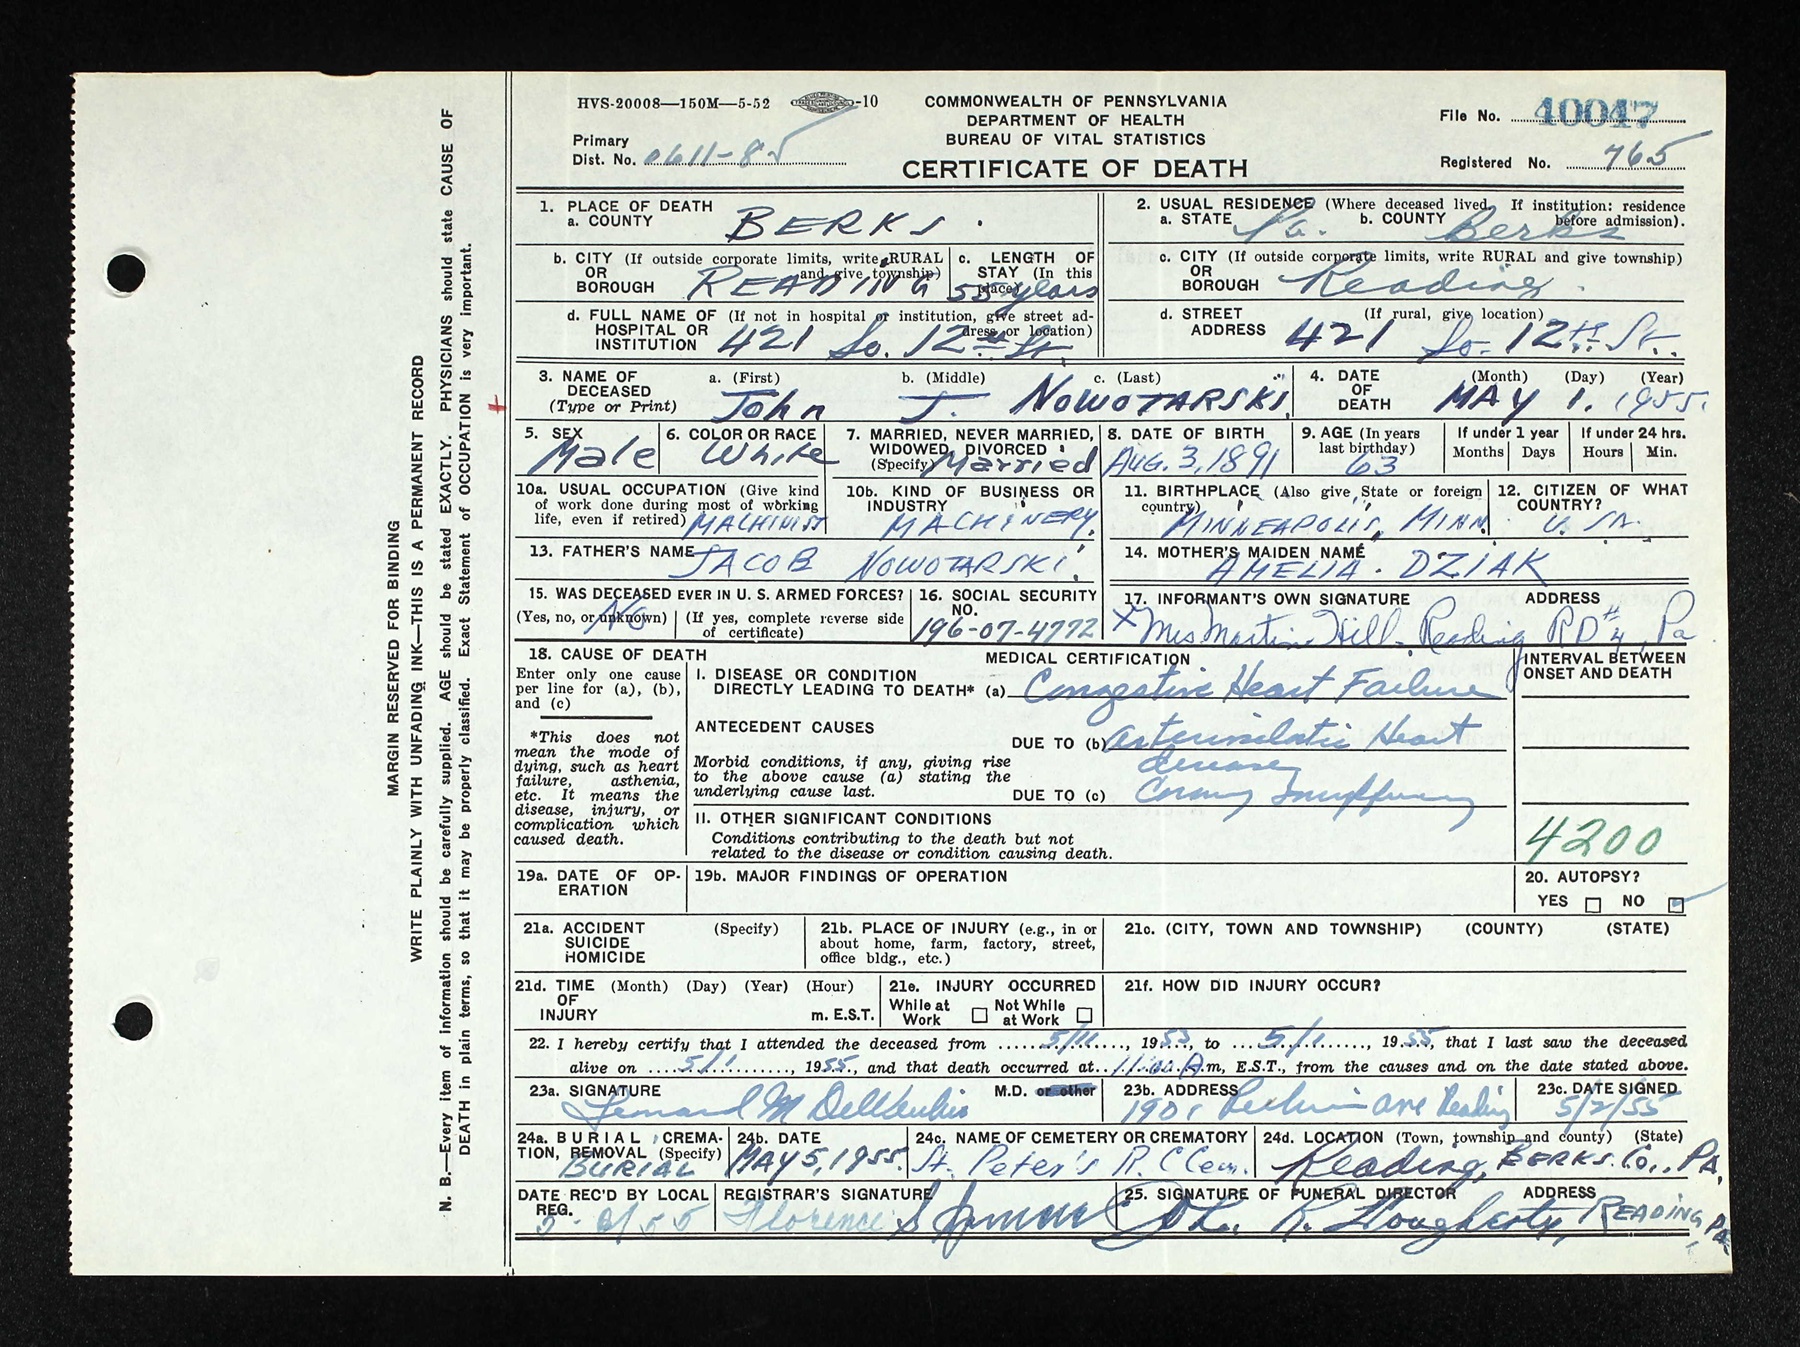 HVS-20008—150M—5-52 -10
COMMONWEALTH OF PENNSYLVANIA
DEPARTMENT OF HEALTH
BUREAU OF VITAL STATISTICS
CERTIFICATE OF DEATH
Primary
Dist. No. 0611-85
File No. 40047
Registered No. 765
MARGIN RESERVED FOR BINDING
WRITE PLAINLY WITH UNFADING INK—THIS IS A PERMANENT RECORD
N. B.—Every item of information should be carefully supplied. AGE should be stated EXACTLY. PHYSICIANS should state CAUSE OF
DEATH in plain terms, so that it may be properly classified. Exact Statement of OCCUPATION is very important.
1. PLACE OF DEATH
a. COUNTY BERKS.
2. USUAL RESIDENCE (Where deceased lived. If institution: residence
before admission).
a. STATE Pa. b. COUNTY Berks
b. CITY (If outside corporate limits, write RURAL
OR and give township)
BOROUGH READING
c. LENGTH OF
STAY (In this
place) 55 years
c. CITY (If outside corporate limits, write RURAL and give township)
OR
BOROUGH Reading.
d. FULL NAME OF (If not in hospital or institution, give street ad-
HOSPITAL OR dress or location)
INSTITUTION 421 So. 12th St.
d. STREET (If rural, give location)
ADDRESS 421 So. 12th St.
3. NAME OF a. (First) b. (Middle) c. (Last)
DECEASED
(Type or Print) John J. NOWOTARSKI
4. DATE (Month) (Day) (Year)
OF
DEATH MAY 1. 1955.
5. SEX
Male
6. COLOR OR RACE
White
7. MARRIED, NEVER MARRIED,
WIDOWED, DIVORCED
(Specify) Married
8. DATE OF BIRTH
AUG. 3, 1891
9. AGE (In years
last birthday)
63
If under 1 year
Months Days
If under 24 hrs.
Hours Min.
10a. USUAL OCCUPATION (Give kind
of work done during most of working
life, even if retired) MACHINIST
10b. KIND OF BUSINESS OR
INDUSTRY
MACHINERY.
11. BIRTHPLACE (Also give State or foreign
country)
MINNEAPOLIS, MINN.
12. CITIZEN OF WHAT
COUNTRY?
U. SA.
13. FATHER'S NAME JACOB NOWOTARSKI.
14. MOTHER'S MAIDEN NAME
AMELIA. DZIAK
15. WAS DECEASED EVER IN U. S. ARMED FORCES?
(Yes, no, or unknown) (If yes, complete reverse side
of certificate)
No
16. SOCIAL SECURITY
NO.
196-07-4772
17. INFORMANT'S OWN SIGNATURE ADDRESS
X Mrs Martin Hill - Reading RD #4, Pa
18. CAUSE OF DEATH
Enter only one cause
per line for (a), (b),
and (c)
*This does not
mean the mode of
dying, such as heart
failure, asthenia,
etc. It means the
disease, injury, or
complication which
caused death.
MEDICAL CERTIFICATION
I. DISEASE OR CONDITION
DIRECTLY LEADING TO DEATH* (a) Congestive Heart Failure
ANTECEDENT CAUSES
DUE TO (b) Arteriosclerotic Heart
disease
Morbid conditions, if any, giving rise
to the above cause (a) stating the
underlying cause last.
DUE TO (c) Coronary Insufficiency
INTERVAL BETWEEN
ONSET AND DEATH
II. OTHER SIGNIFICANT CONDITIONS
Conditions contributing to the death but not
related to the disease or condition causing death.
4200
19a. DATE OF OP-
ERATION
19b. MAJOR FINDINGS OF OPERATION
20. AUTOPSY?
YES NO
21a. ACCIDENT (Specify)
SUICIDE
HOMICIDE
21b. PLACE OF INJURY (e.g., in or
about home, farm, factory, street,
office bldg., etc.)
21c. (CITY, TOWN AND TOWNSHIP) (COUNTY) (STATE)
21d. TIME (Month) (Day) (Year) (Hour)
OF
INJURY m. E.S.T.
21e. INJURY OCCURRED
While at Not While
Work at Work
21f. HOW DID INJURY OCCUR?
22. I hereby certify that I attended the deceased from 5/11, 1953, to 5/1, 1955, that I last saw the deceased
alive on 5/1, 1955, and that death occurred at 11:00 A.m, E.S.T., from the causes and on the date stated above.
23a. SIGNATURE M.D. or other
Leonard M
23b. ADDRESS
1901 Perkiomen Ave Reading
23c. DATE SIGNED
5/2/55
24a. BURIAL, CREMA-
TION, REMOVAL (Specify)
BURIAL
24b. DATE
MAY 5, 1955.
24c. NAME OF CEMETERY OR CREMATORY
St. Peter's R. C Cem.
24d. LOCATION (Town, township and county) (State)
Reading, BERKS. Co., PA.
DATE REC'D BY LOCAL
REG.
REGISTRAR'S SIGNATURE
Florence S
25. SIGNATURE OF FUNERAL DIRECTOR ADDRESS
READING PA.